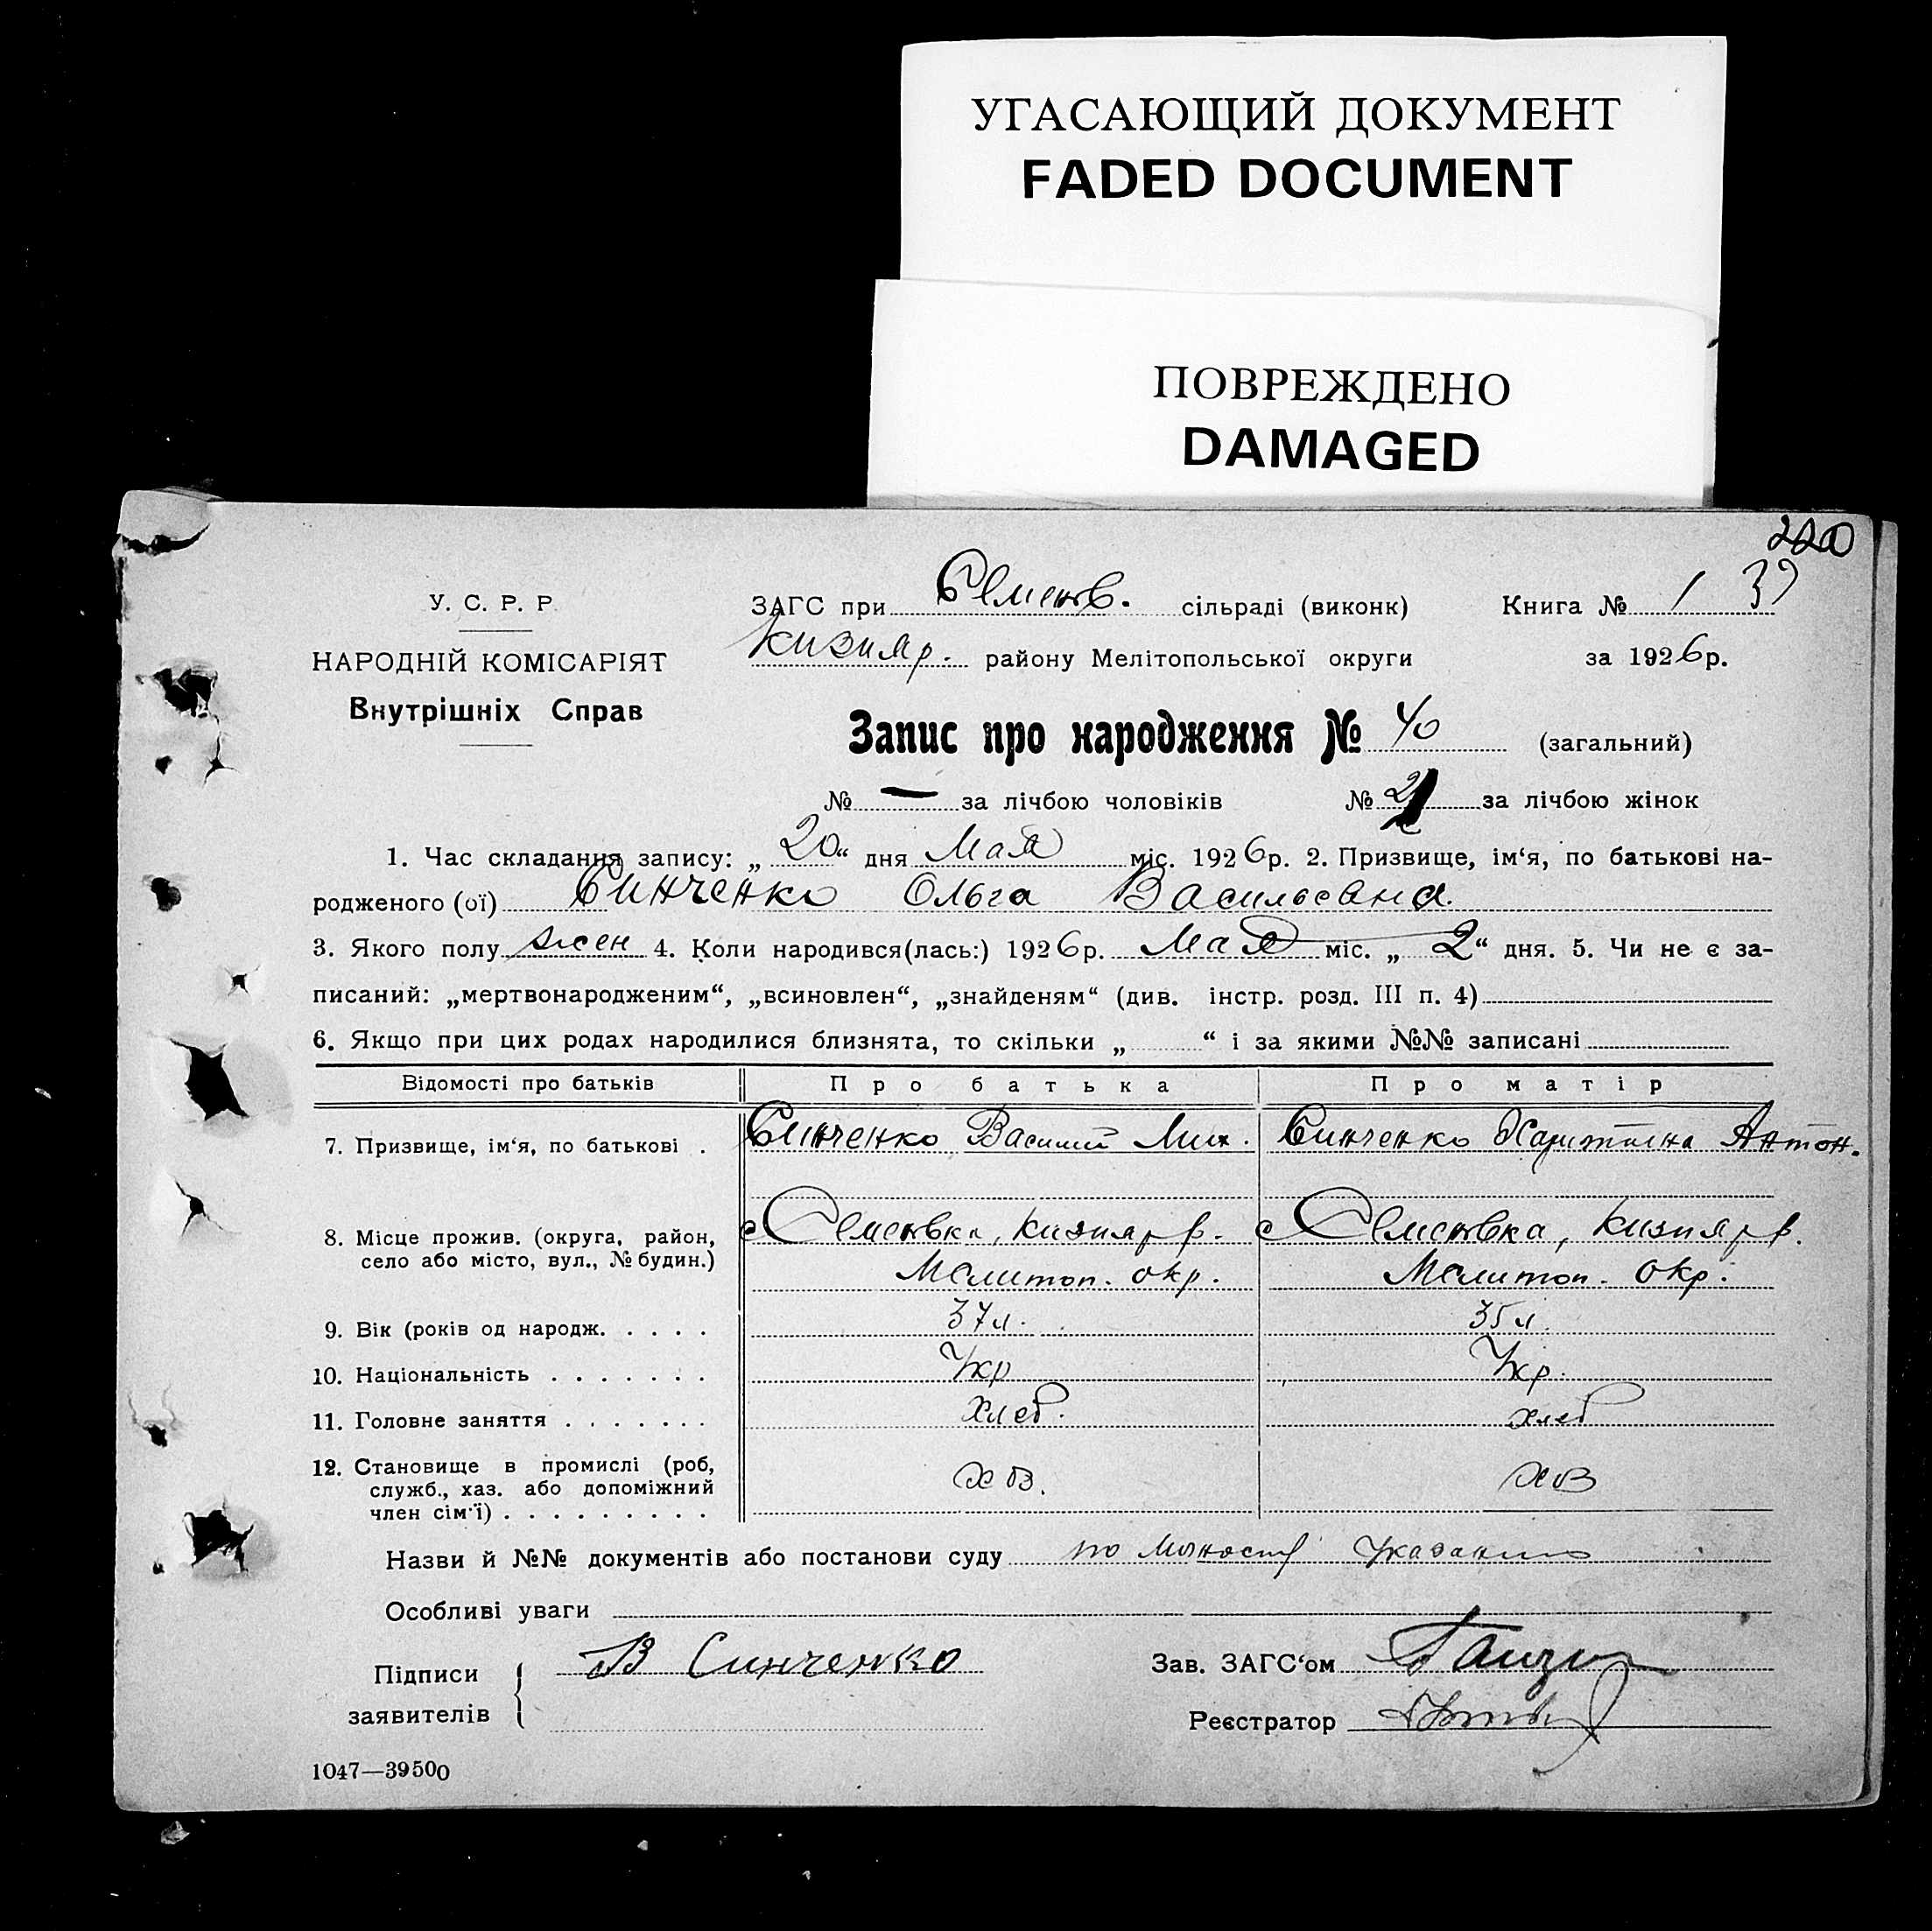 УГАСАЮЩИЙ ДОКУМЕНТ
FADED DOCUMENT
ПОВРЕЖДЕНО
DAMAGED
220
У. С. Р. Р.
НАРОДНІЙ КОМІСАРІЯТ
Внутрішніх Справ
ЗАГС при Семенов. сільраді (виконк) Книга № 1 39
Кизияр. району Мелітопольської округи за 1926р.
Запис про народження № 40 (загальний)
№ — за лічбою чоловіків № за лічбою жінок
1. Час складання запису: „20“ дня Мая міс. 1926р. 2. Призвище, ім‘я, по батькові на-
родженого (ої) Синченко Ольга Васильевна.
3. Якого полу жен 4. Коли народився(лась:) 1926р. Мая міс. „2“ дня. 5. Чи не є за-
писаний: „мертвонародженим“, „всиновлен“, „знайденям“ (див. інстр. розд. III п. 4)
6. Якщо при цих родах народилися близнята, то скільки „ “ і за якими №№ записані
Відомості про батьків Про батька Про матір
7. Призвище, ім‘я, по батькові . Синченко Василий Мих. Синченко Харитина Антон.
8. Місце прожив. (округа, район, с Семеновка, Кизияр р. с Семеновка, Кизияр р.
село або місто, вул., № будин.) Мелитоп. окр. Мелитоп. окр.
9. Вік (років од народж. . . . . 37 л. 35 л.
10. Національність . . . . . . . Укр Укр.
11. Головне заняття . . . . . . . хлеб. хлеб
12. Становище в промислі (роб,
служб., хаз. або допоміжний хоз. хоз
член сім‘ї) . . . . . . . . .
Назви й №№ документів або постанови суду по указанию
Особливі уваги
Підписи В Синченко Зав. ЗАГС‘ом
заявителів Реєстратор
1047—39500